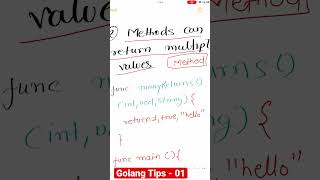 2) Methods can
return multipl
values [Method
func manyReturns()
(int, bool, string) {
return 1, true, "hello"
}
func main () {
Golang Tips - 01